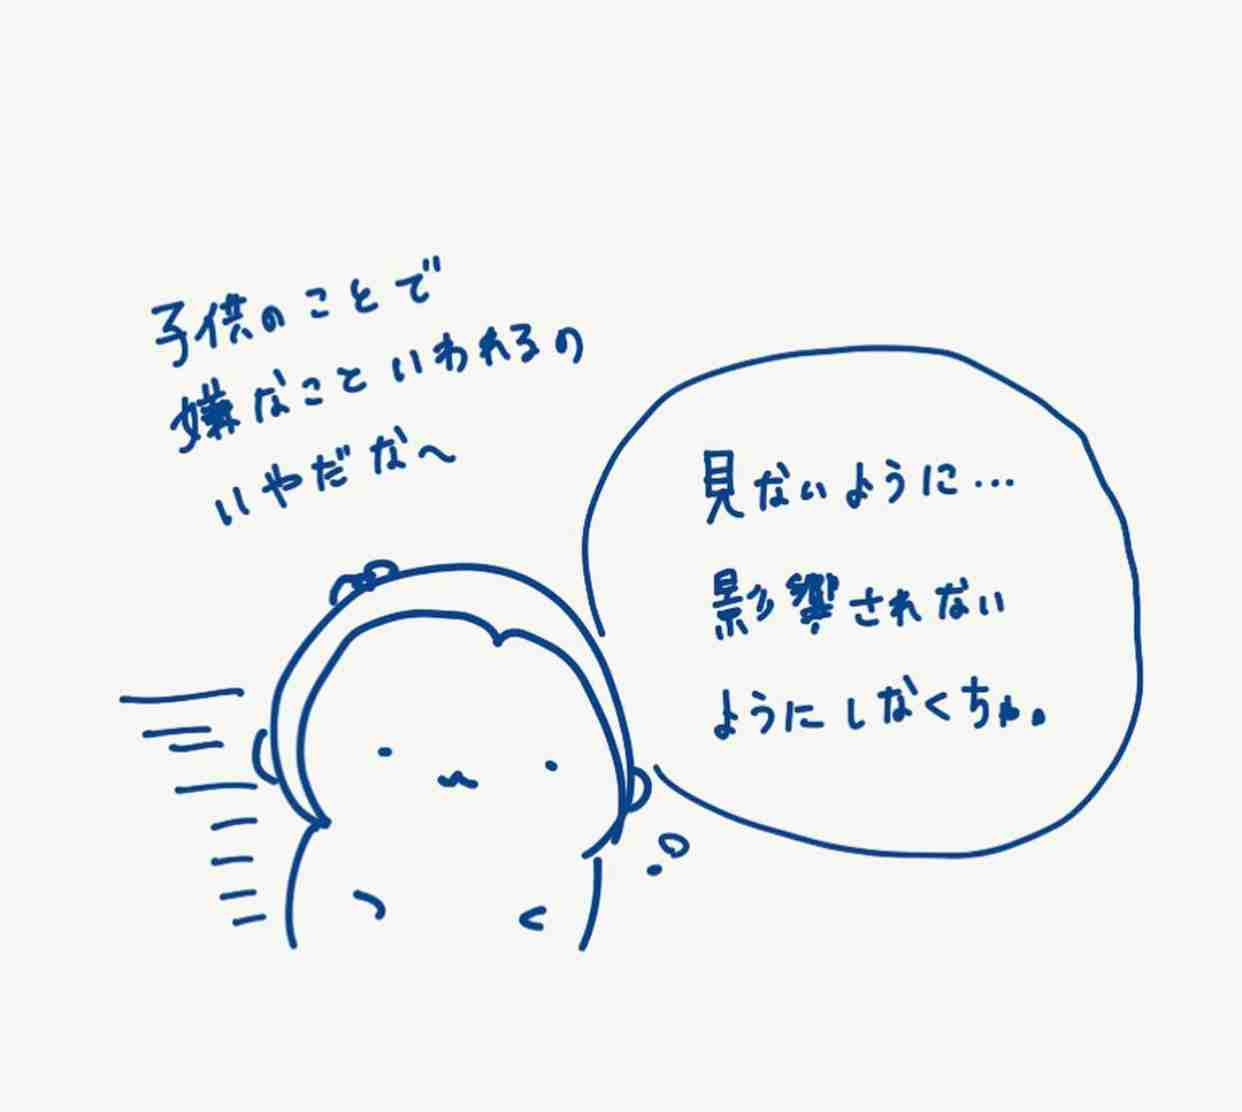 子供のことで
嫌なこといわれるの
いやだなへ
見ないように…
影響されない
ようにしなくちゃ。